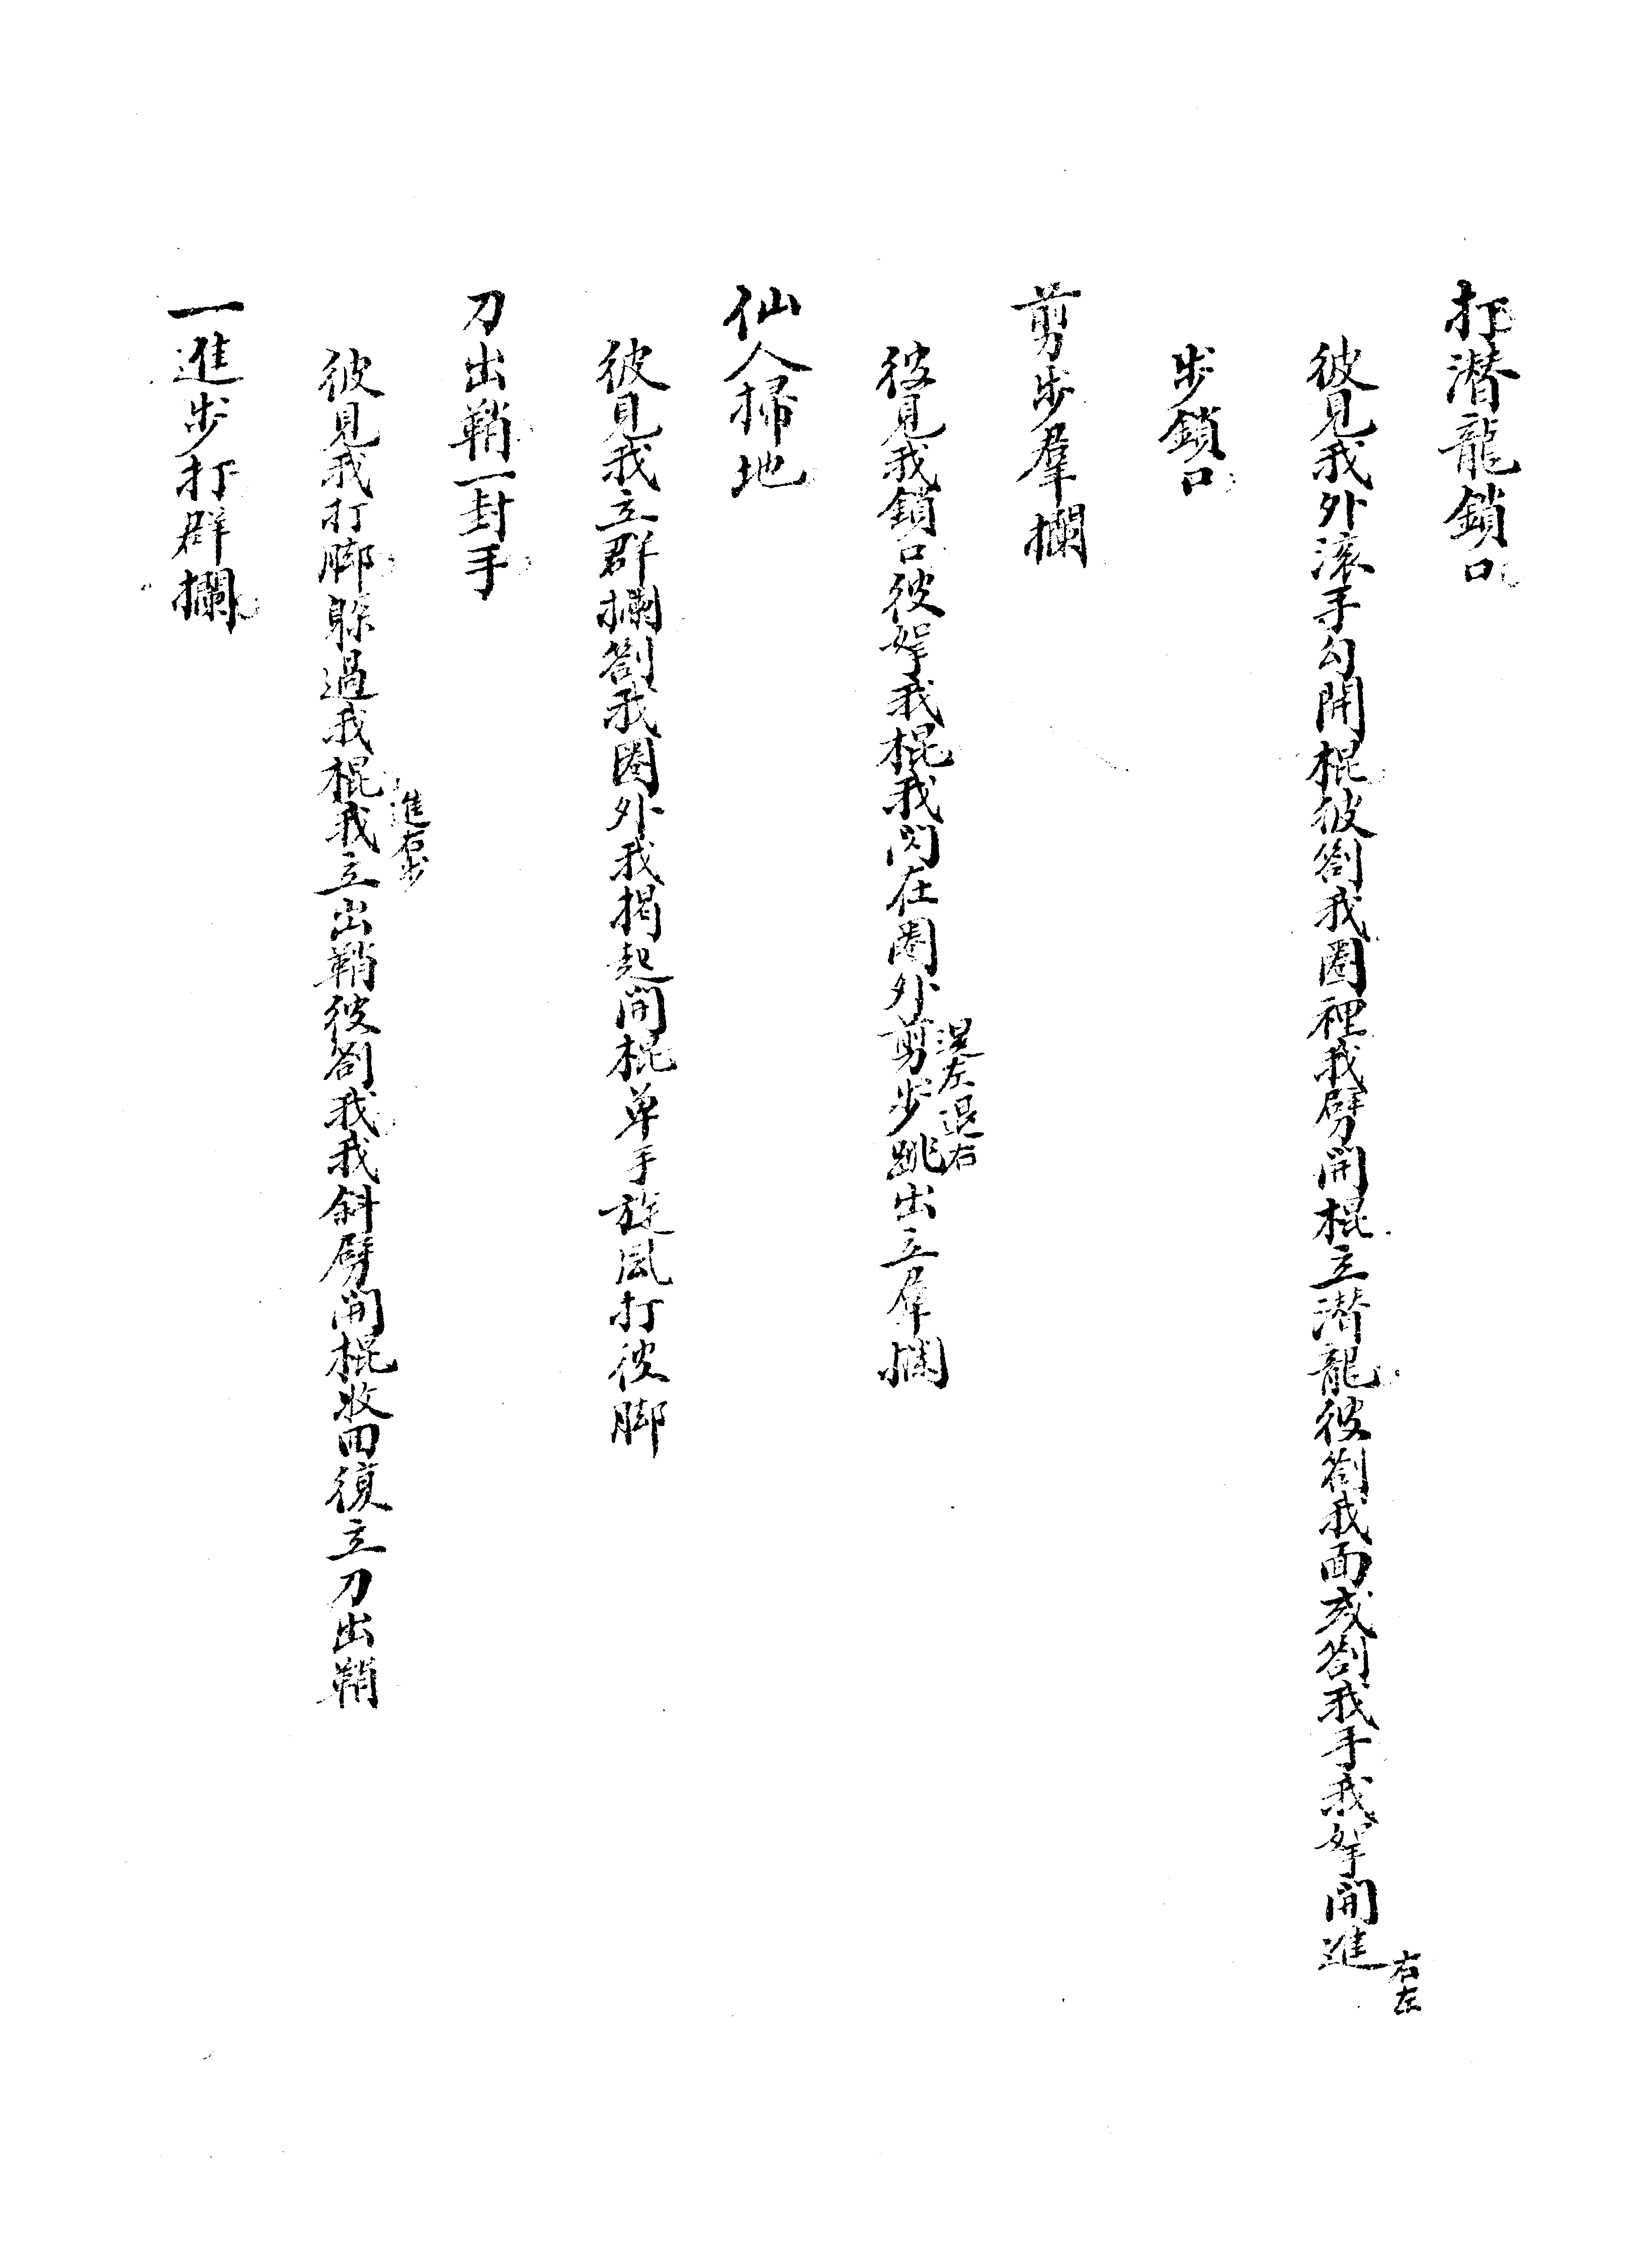 打潜龍鎖口
彼見我外滚手勾開棍彼劄我圈裡我劈開棍立潜龍彼劄我面或劄我手我拏開進
右左
步鎖口
剪步羣攔
彼見我鎖口彼拏我棍我閃在圈外剪步跳出立羣攔
退左退右
仙人掃地
彼見我立群攔劄我圈外我揭起開棍单手旋風打彼脚
刀出鞘一封手
彼見我打脚躲過我棍我立出鞘彼劄我我斜劈開棍收回復立刀出鞘
進右步
一進步打群攔